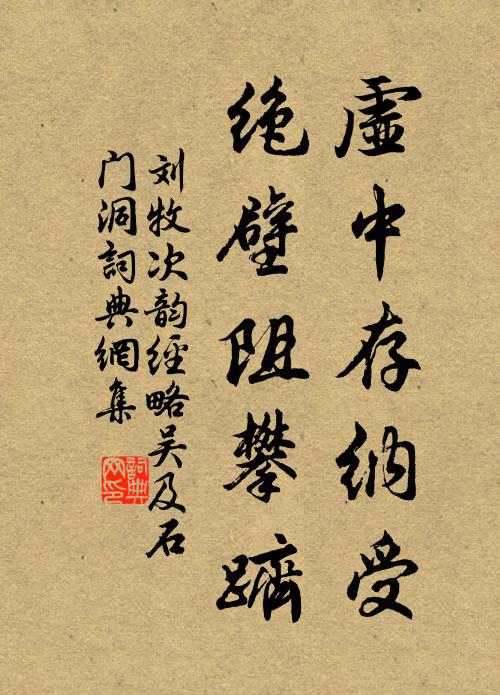 虚中存纳受
绝壁阻攀躋
刘牧次韵經略吴及石
门洞詞典網集
詞典
网印